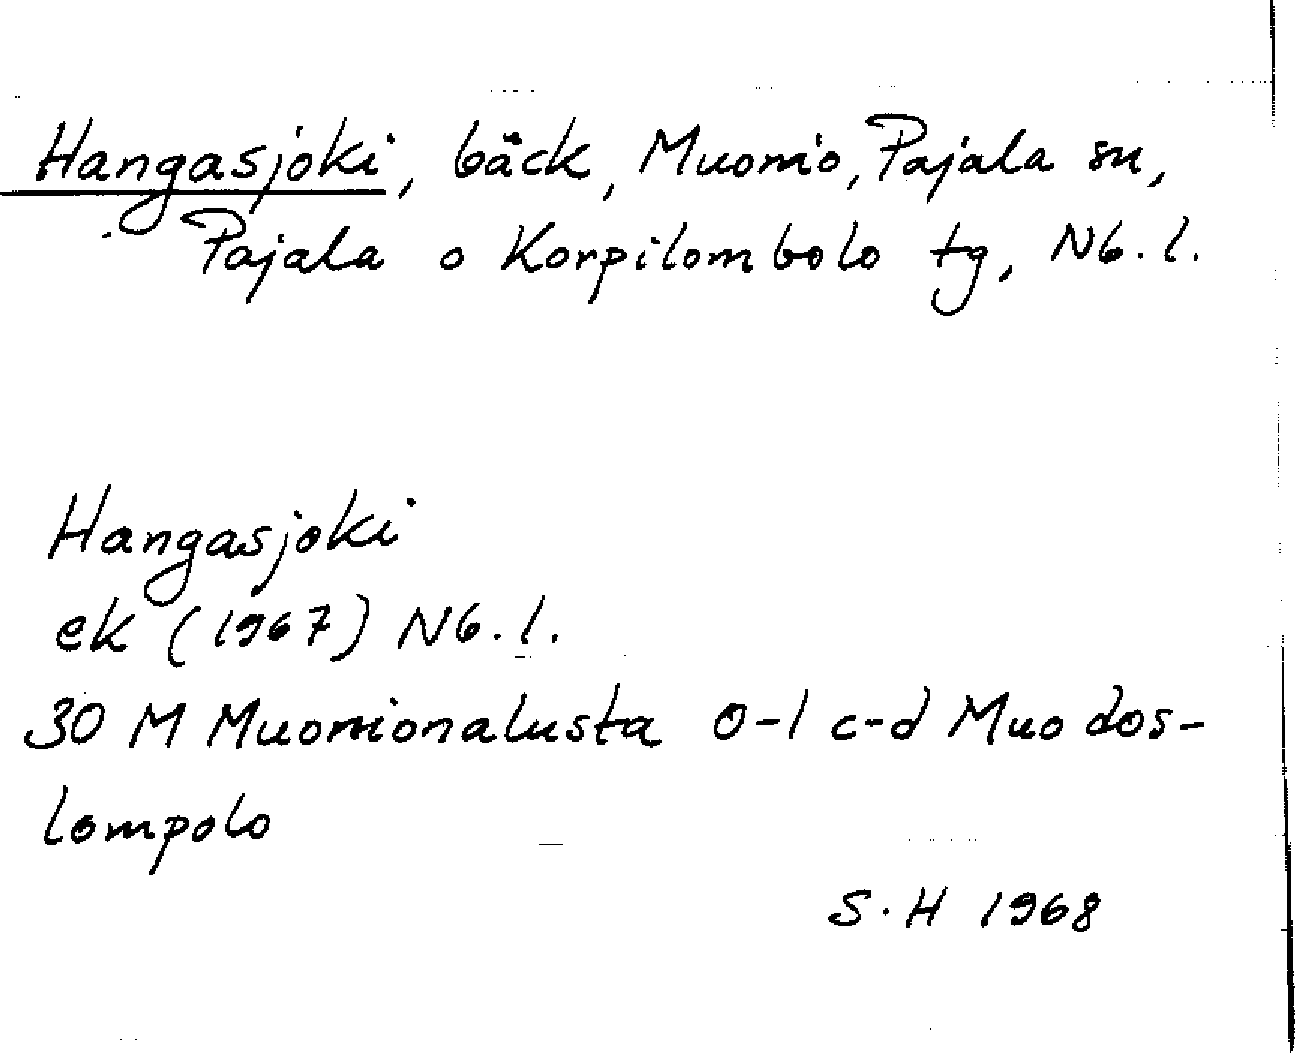 Hangasjoki, bäck, Muonio, Pajala sn,
Pajala o Korpilombolo tg, Nb. l.
Hangasjoki
ek (1967) Nb. l.
30 M Muonionalusta 0-1 c-d Muodos-
lompolo
S. H 1968